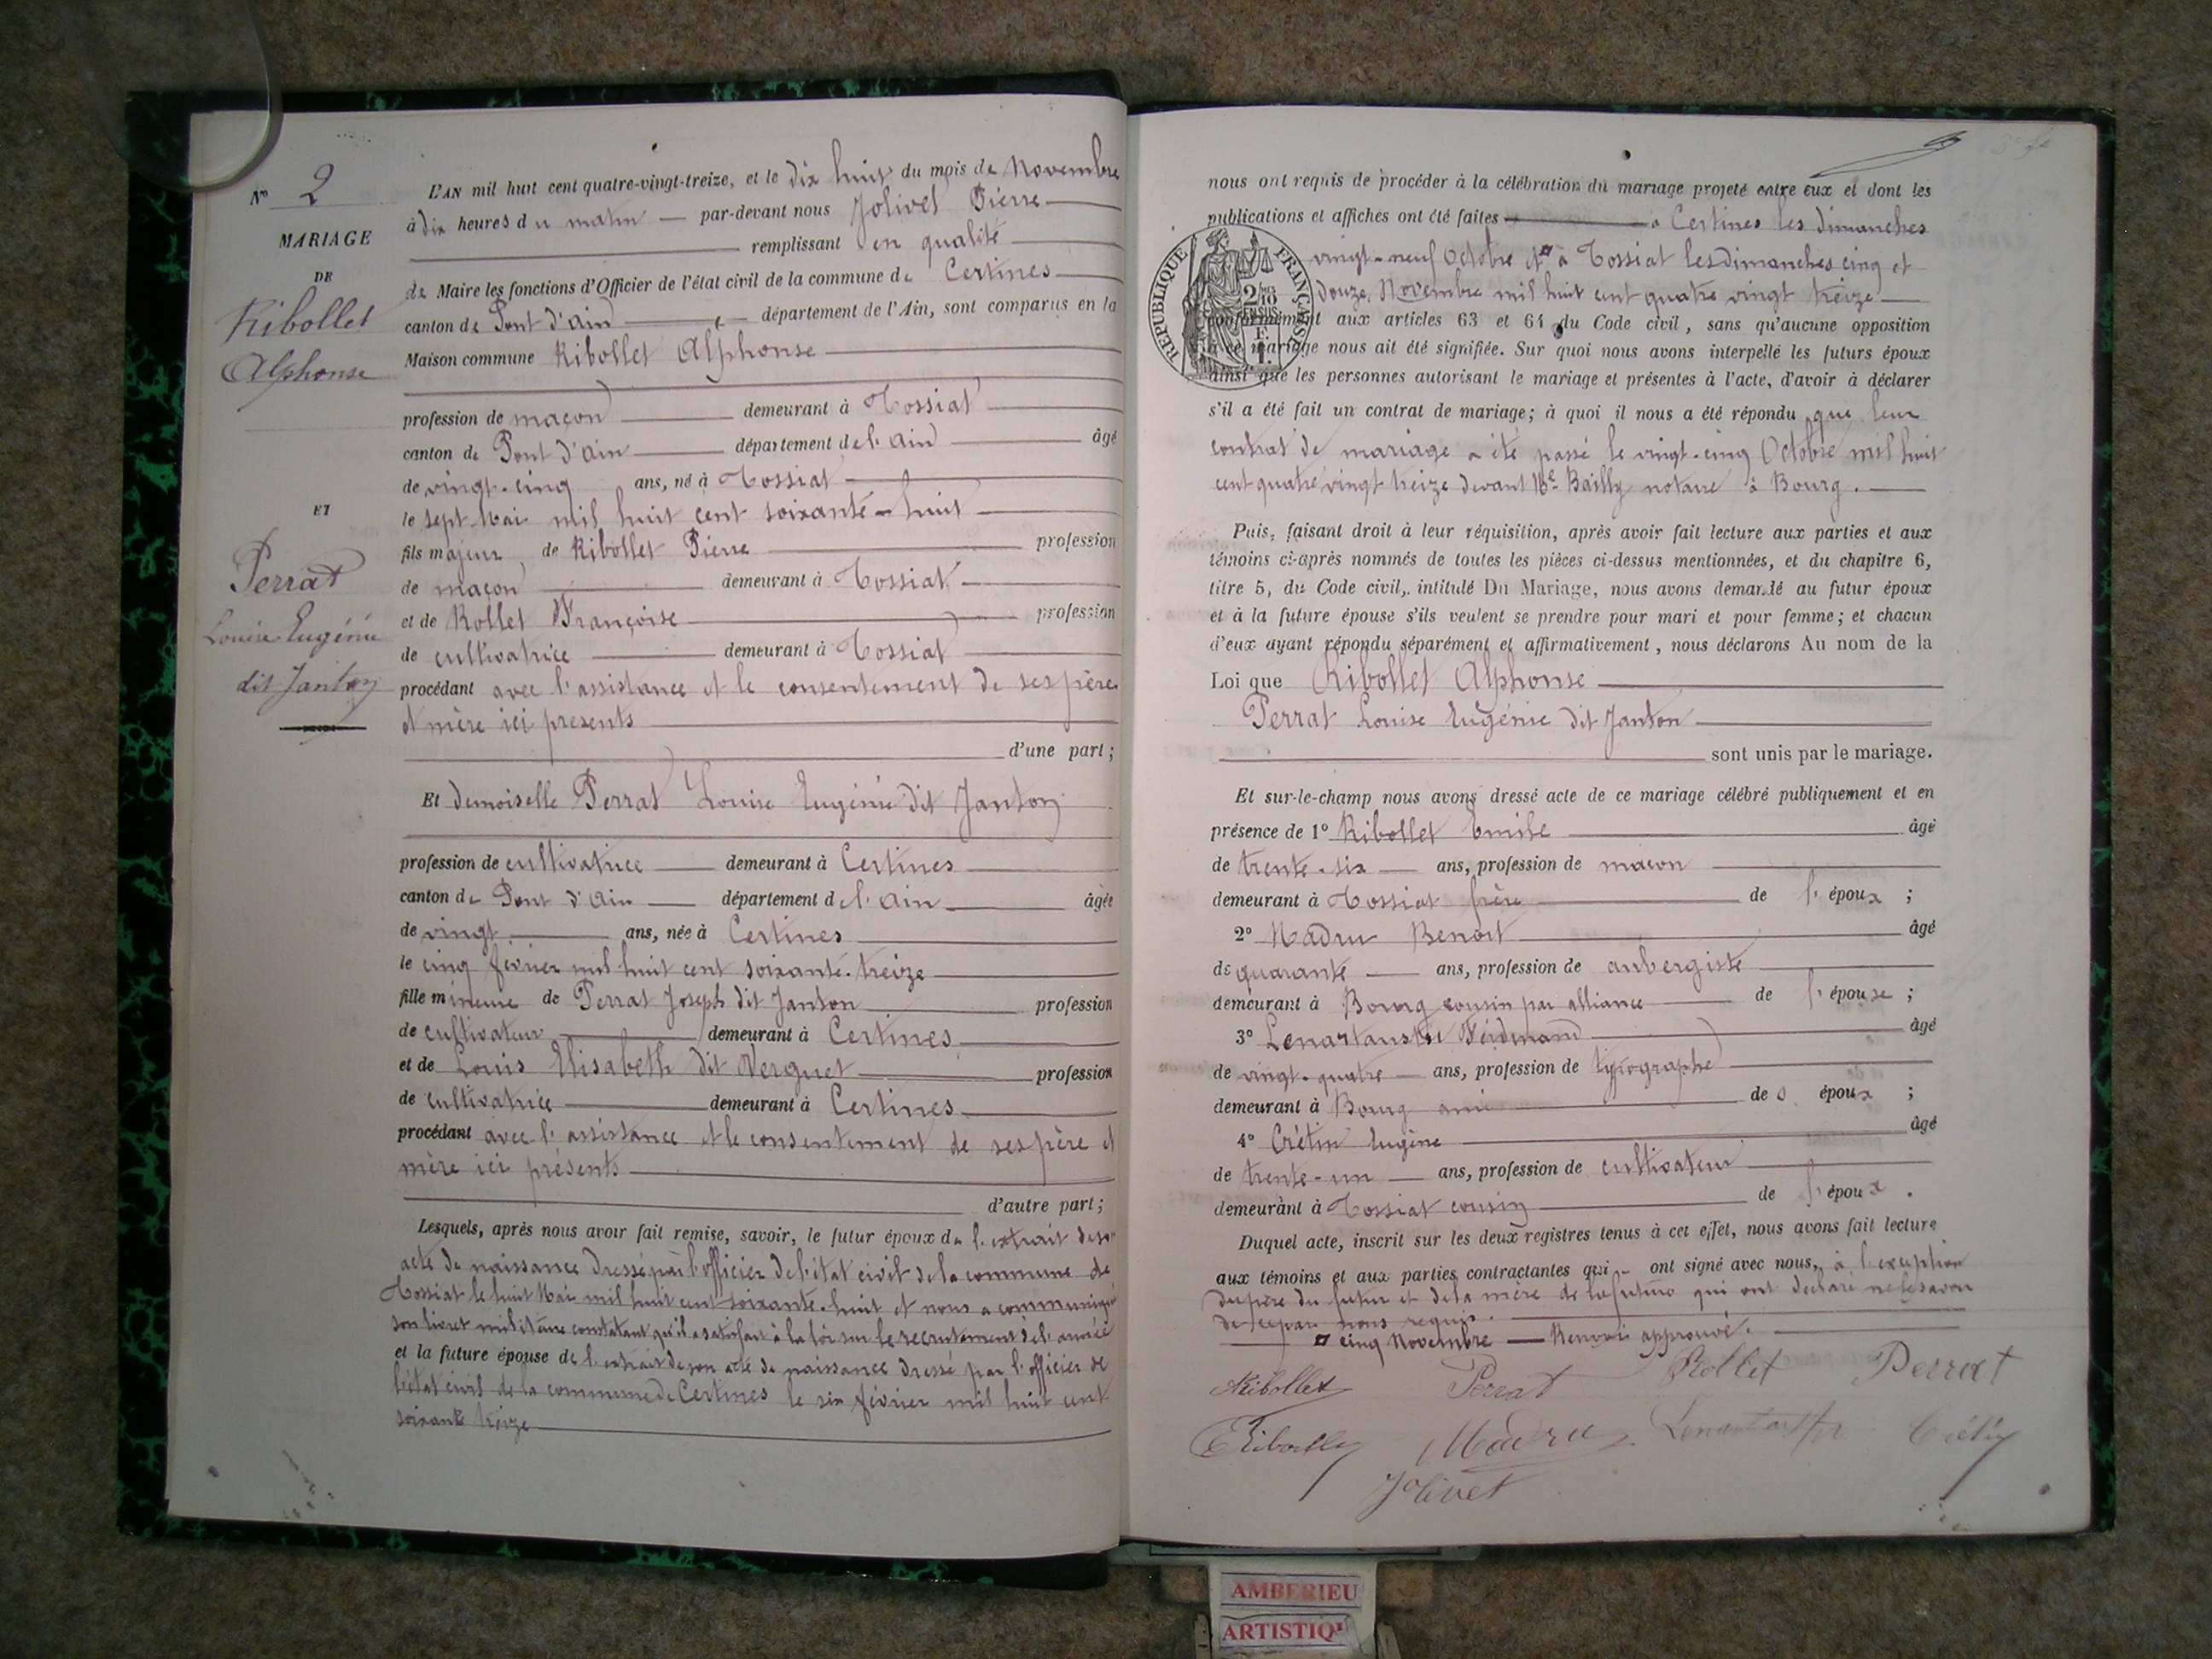 N° 2
MARIAGE
DE
Ribollet
Alphonse
ET
Perrat
Louise Eugénie
dit Janton
L'AN mil huit cent quatre-vingt-treize, et le dix huit du mois de Novembre
à dix heures du matin — par-devant nous Jolivet Pierre
remplissant en qualité
de Maire les fonctions d'Officier de l'état civil de la commune de Certines
canton de Pont d'Ain — département de l'Ain, sont comparus en la
Maison commune Ribollet Alphonse
profession de maçon demeurant à Tossiat
canton de Pont d'Ain département de l'Ain âgé
de vingt-cinq ans, né à Tossiat
le sept Mai mil huit cent soixante-huit
fils majeur, de Ribollet Pierre profession
de maçon demeurant à Tossiat
et de Rollet Françoise profession
de cultivatrice demeurant à Tossiat
procédant avec l'assistance et le consentement de ses père
et mère ici presents
d'une part;
Et demoiselle Perrat Louise Eugénie dit Janton
profession de cultivatrice demeurant à Certines
canton de Pont d'Ain département de l'Ain âgée
de vingt ans, née à Certines
le cinq février mil huit cent soixante-treize
fille mineure de Perrat Joseph dit Janton profession
de cultivateur demeurant à Certines
et de Louis Elisabeth dit Verguet profession
de cultivatrice demeurant à Certines
procédant avec l'assistance et le consentement de ses père et
mère ici présents
d'autre part;
Lesquels, après nous avoir fait remise, savoir, le futur époux de l'extrait de son
acte de naissance dressé par l'officier de l'état civil de la commune de
Tossiat le huit Mai mil huit cent soixante-huit et nous a communiqué
son livret militaire constatant qu'il a satisfait à la loi sur le recrutement de l'armée
et la future épouse de l'extrait de son acte de naissance dressé par l'officier de
l'état civil de la commune de Certines le six février mil huit cent
soixante treize
nous ont requis de procéder à la célébration du mariage projeté entre eux et dont les
publications et affiches ont été faites à Certines les dimanches
vingt-neuf Octobre et ¤ à Tossiat les dimanches cinq et
douze Novembre mil huit cent quatre vingt treize
conformément aux articles 63 et 64 du Code civil, sans qu'aucune opposition
à ce mariage nous ait été signifiée. Sur quoi nous avons interpellé les futurs époux
ainsi que les personnes autorisant le mariage et présentes à l'acte, d'avoir à déclarer
s'il a été fait un contrat de mariage; à quoi il nous a été répondu que leur
contrat de mariage a été passé le vingt-cinq Octobre mil huit
cent quatre vingt treize devant Me Bailly notaire à Bourg.
RÉPUBLIQUE FRANÇAISE
Puis, faisant droit à leur réquisition, après avoir fait lecture aux parties et aux
témoins ci-après nommés de toutes les pièces ci-dessus mentionnées, et du chapitre 6,
titre 5, du Code civil, intitulé Du Mariage, nous avons demandé au futur époux
et à la future épouse s'ils veulent se prendre pour mari et pour femme; et chacun
d'eux ayant répondu séparément et affirmativement, nous déclarons Au nom de la
Loi que Ribollet Alphonse
Perrat Louise Eugénie dit Janton
sont unis par le mariage.
Et sur-le-champ nous avons dressé acte de ce mariage célébré publiquement et en
présence de 1° Ribollet Emile âgé
de trente-six ans, profession de maçon
demeurant à Tossiat frère de l'époux ;
2° Madru Benoit âgé
de quarante ans, profession de aubergiste
demeurant à Bourg cousin par alliance de l'épouse ;
3° Ferdinand âgé
de vingt-quatre ans, profession de typographe
demeurant à Bourg ami de s époux ;
4° Crétin Eugène âgé
de trente-un ans, profession de cultivateur
demeurant à Tossiat cousin de l'époux .
Duquel acte, inscrit sur les deux registres tenus à cet effet, nous avons fait lecture
aux témoins et aux parties contractantes qui ont signé avec nous, à l'exception
du père du futur et de la mère de la future qui ont déclaré ne le savoir
de ce par nous requis.
¤ cinq Novembre — Renvoi approuvé.
Ribollet Perrat Rollet Perrat
E Ribollet Madru Crétin
Jolivet
AMBERIEU
ARTISTIQ